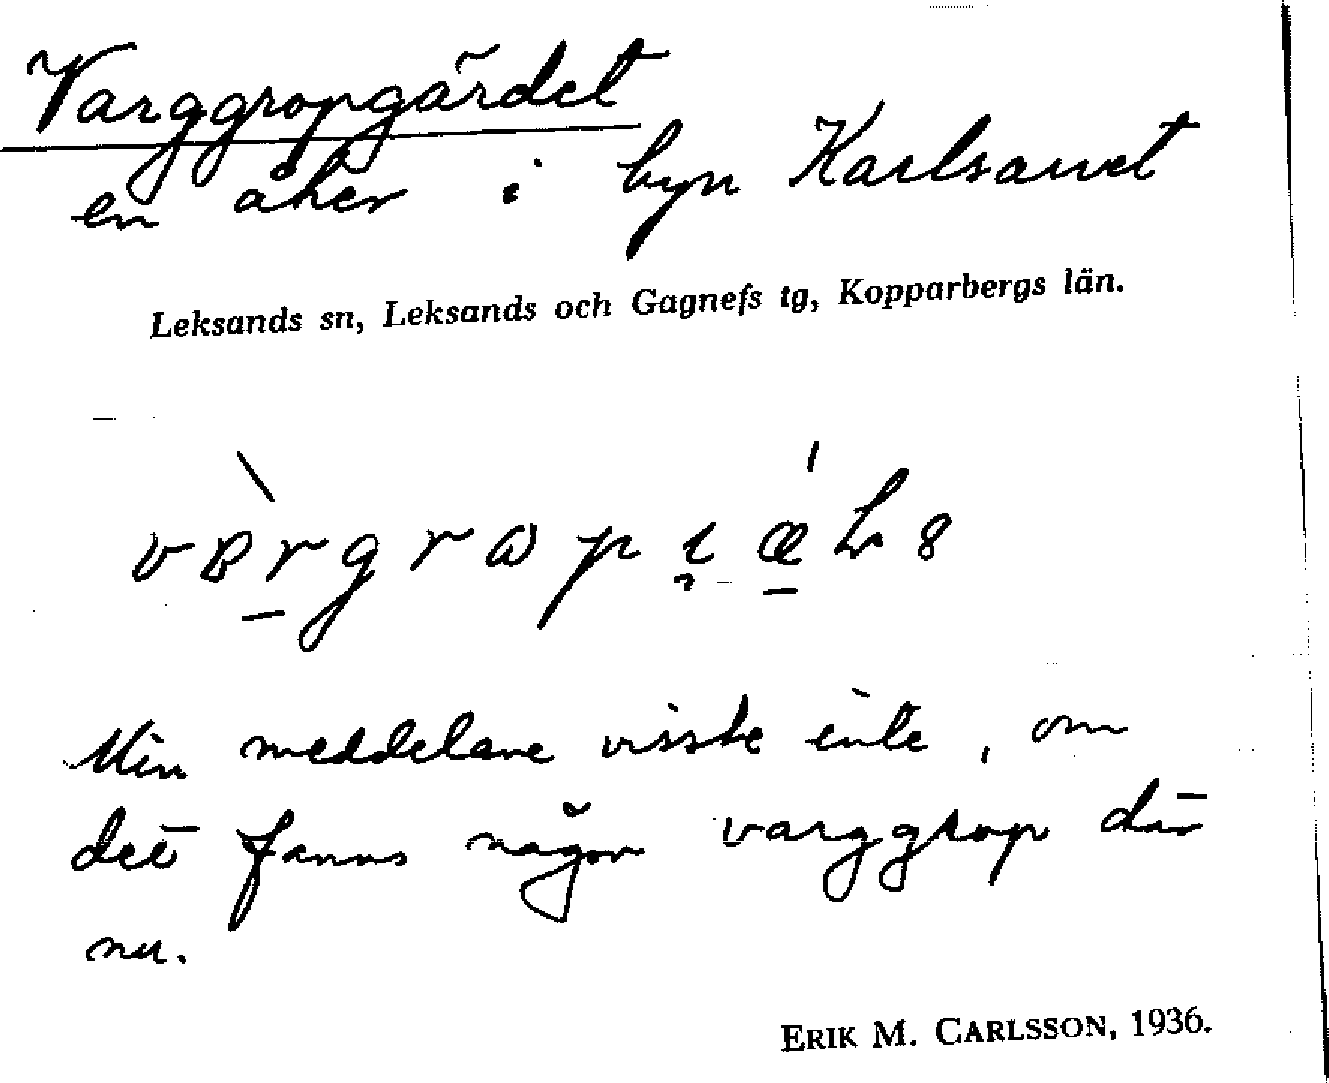 Varggropgärdet
en åker i byn Karlsarvet
Leksands sn, Leksands och Gagnefs tg, Kopparbergs län.
Min meddelare visste inte, om
det fanns någon varggrop där
nu.
ERIK M. CARLSSON, 1936.